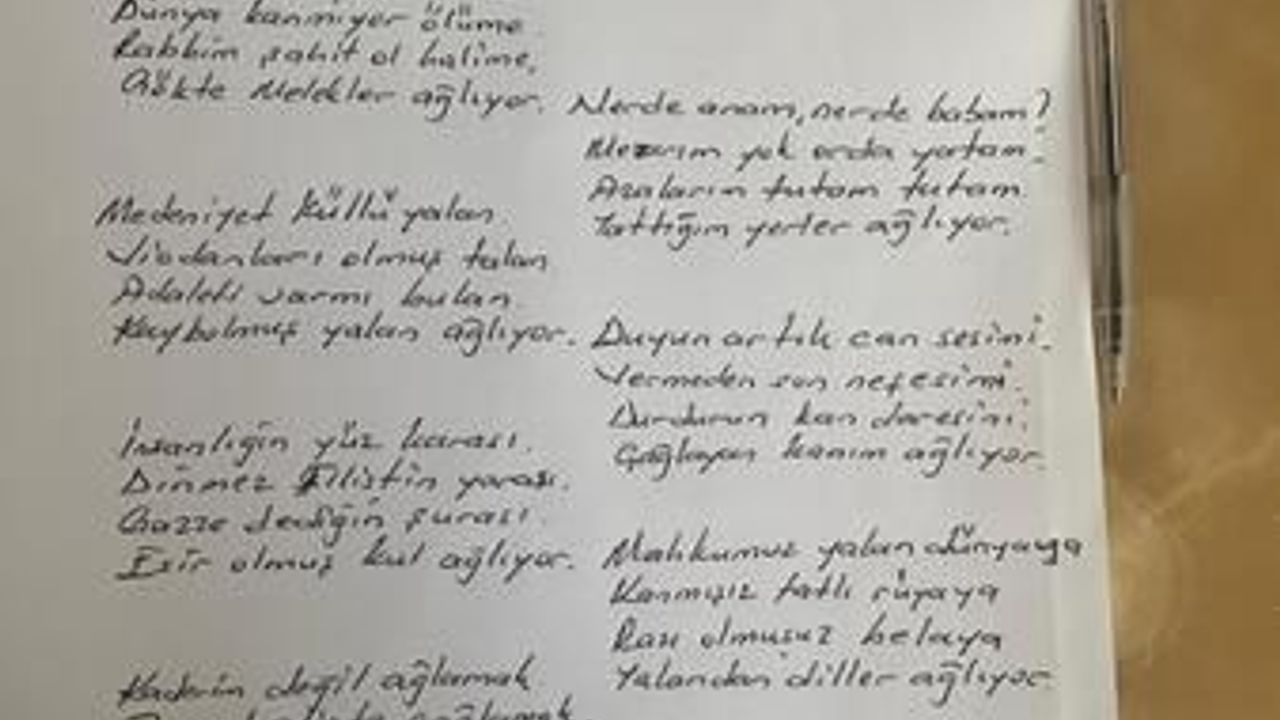 Dünya kanmıyor ölüme
Rabbim şahit ol halime,
Gökte Melekler ağlıyor.
Medeniyet küllü yalan
Vicdanları olmuş talan
Adaleti varmı bulan
Kaybolmuş yalan ağlıyor.
İnsanlığın yüz karası.
Dinmez Filistin yarası.
Gazze dediğin şurası.
Esir olmuş kul ağlıyor.
Kaderin değil ağlamak
ağlamak
Nerde anam, nerde babam?
Mezarım yok orda yatam.
Azaların tutam tutam
Yattığım yerler ağlıyor.
Duyun artık can sesimi.
Vermeden son nefesimi.
Durdurun kan deresini.
Çağlayan kanım ağlıyor.
Mahkumuz yalan dünyaya
Kanmışız tatlı rüyaya
Razı olmuşuz belaya
Yalandan diller ağlıyor.